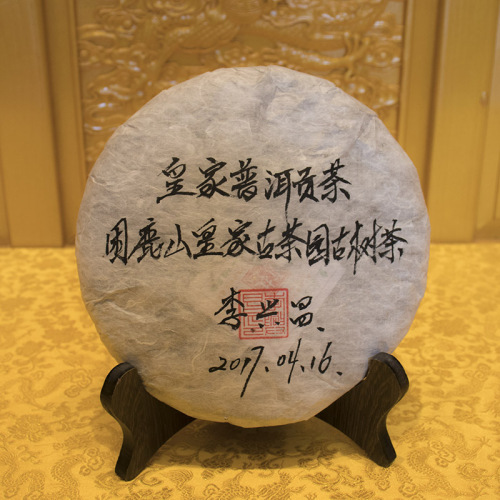 皇家普洱贡茶
困鹿山皇家古茶园古树茶
李兴昌
2017.04.16.